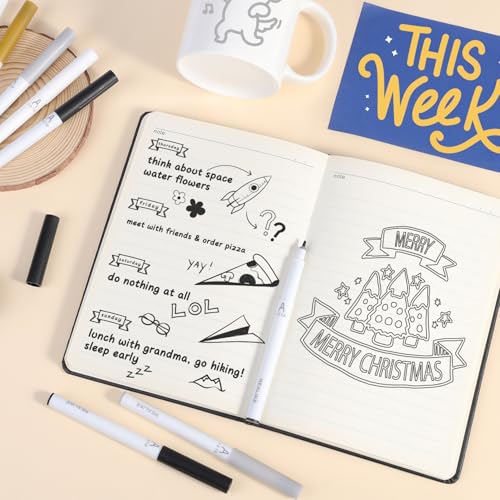 THIS
WeeK
note:
note:
thursday
think about space
water flowers
??
friday
meet with friends & order pizza
saturday
YAY!
do nothing at all
LOL
sunday
lunch with grandma, go hiking!
sleep early
zzz
MERRY
MERRY CHRISTMAS
A
A
A